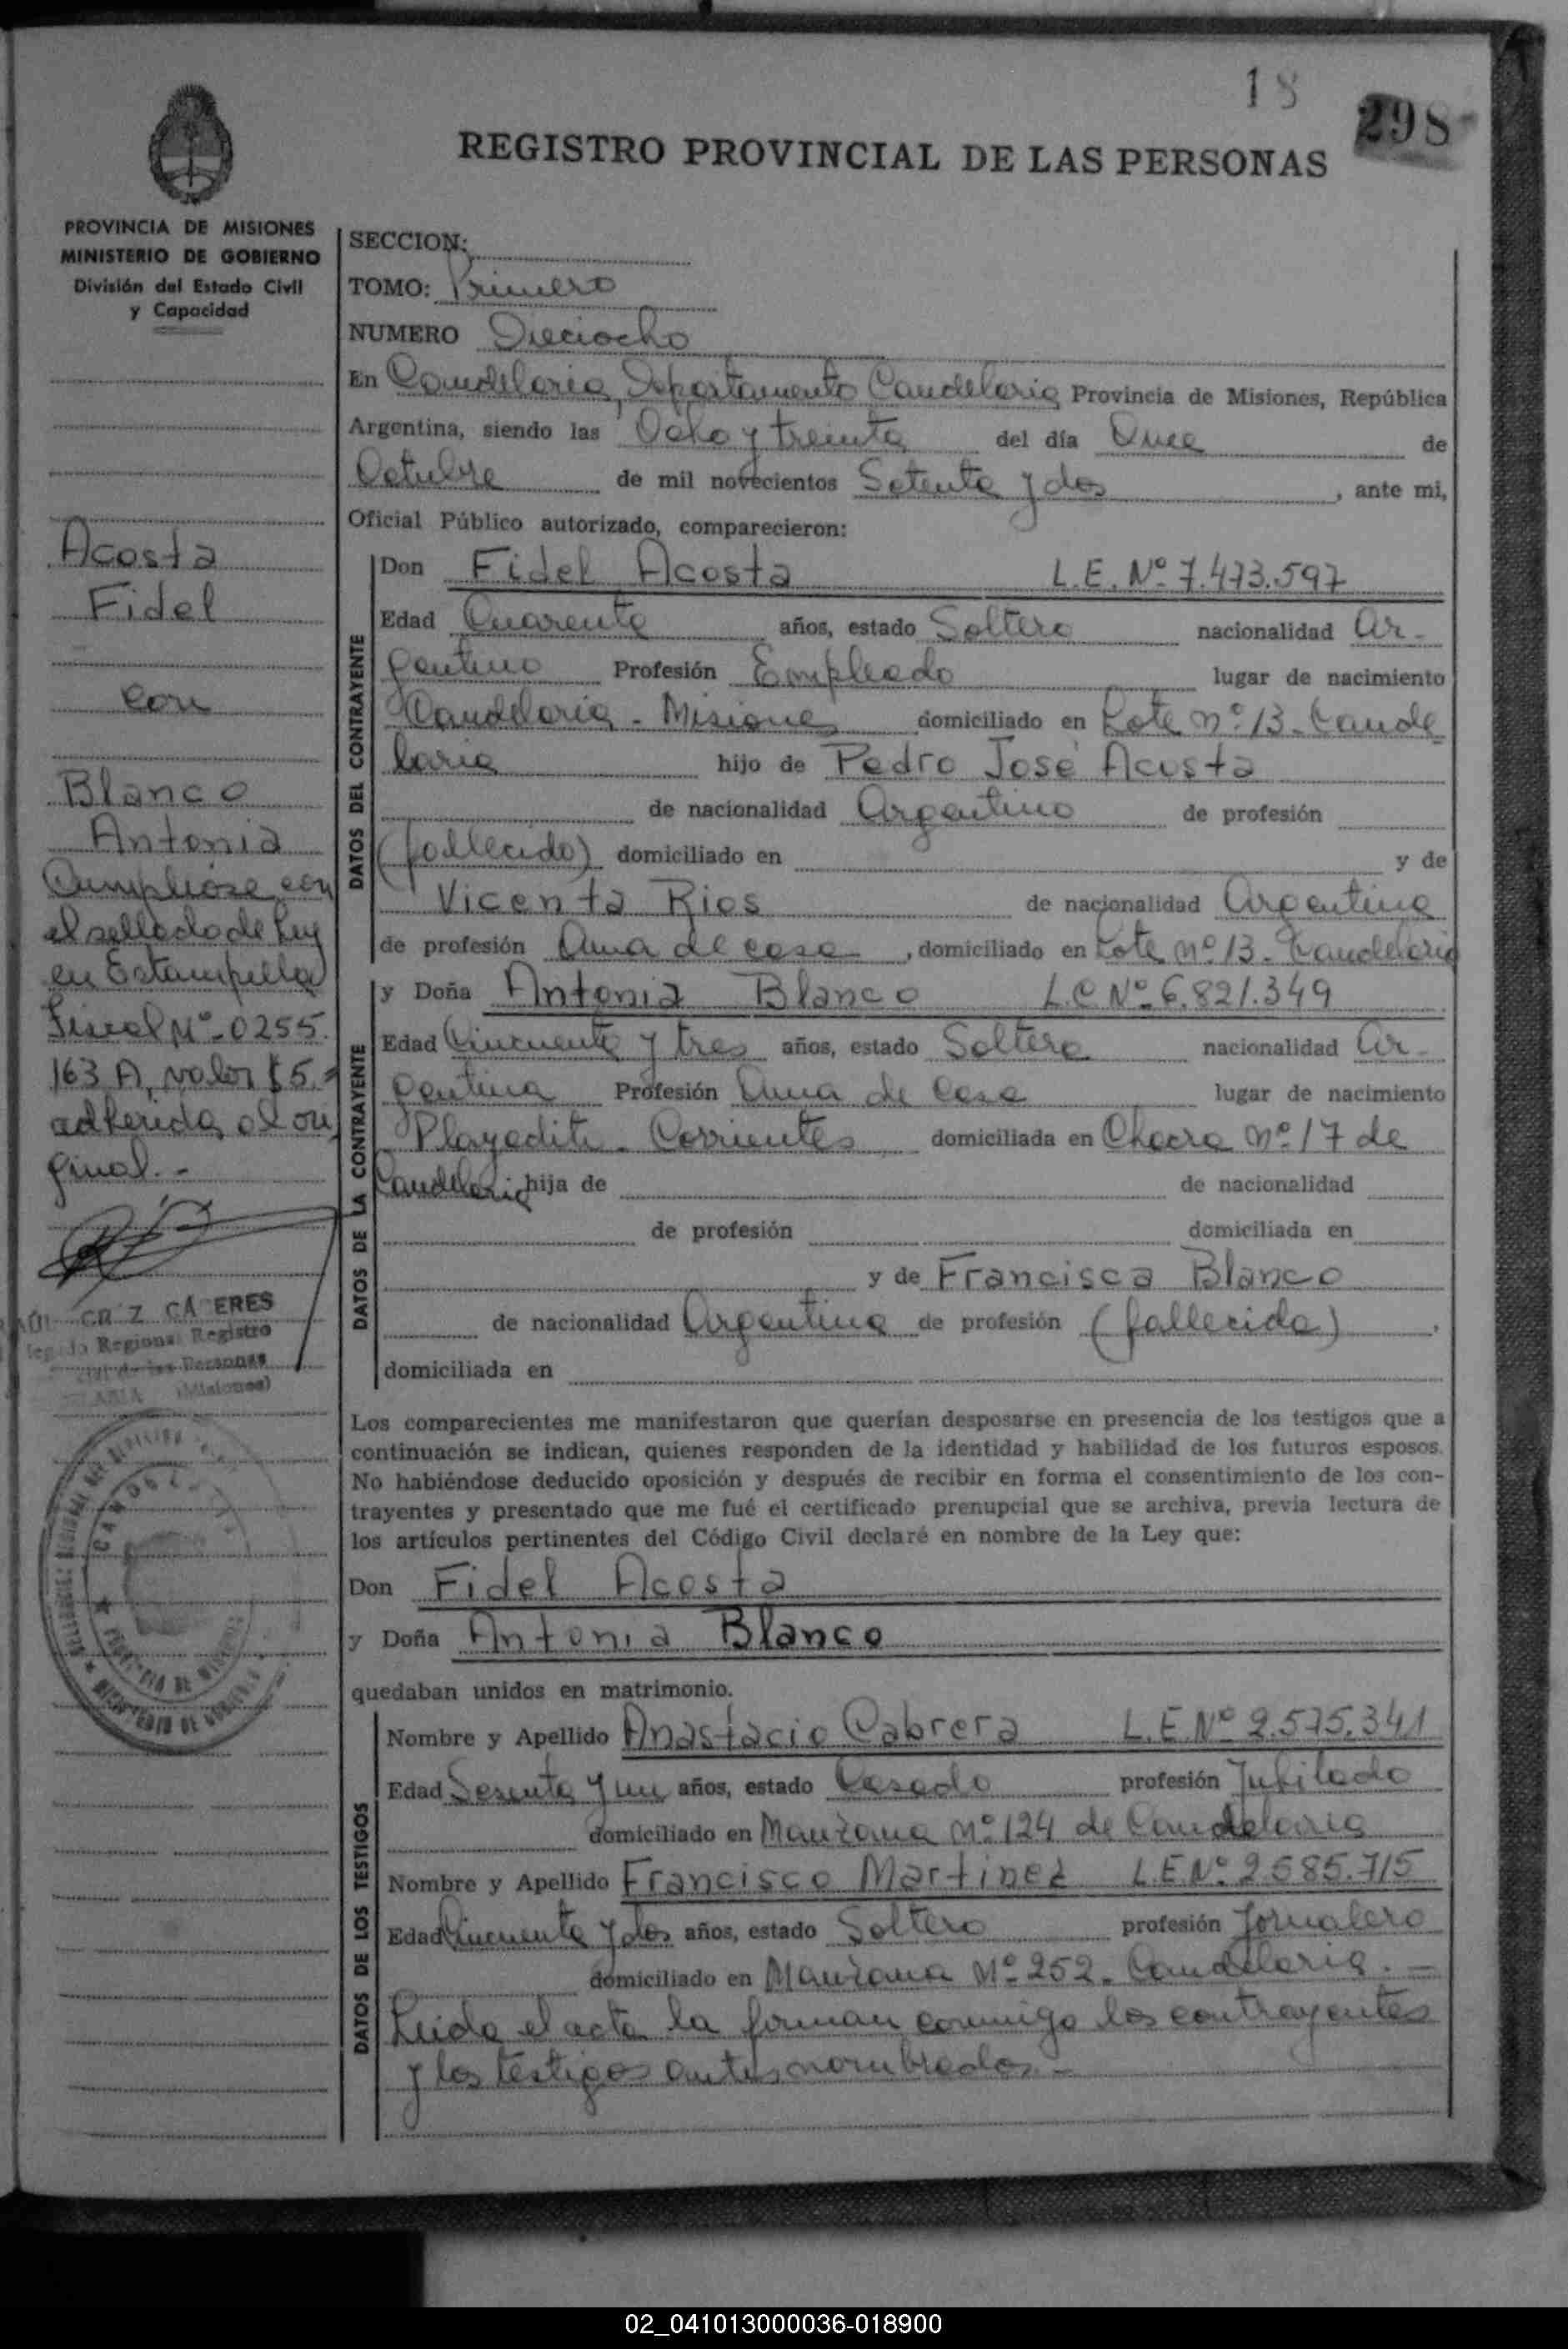 18
298
REGISTRO PROVINCIAL DE LAS PERSONAS
PROVINCIA DE MISIONES
MINISTERIO DE GOBIERNO
División del Estado Civil
y Capacidad
Acosta
Fidel
con
Blanco
Antonia
Cumpliose con
el sellado de Ley
en Estampilla
Fiscal Nº 0255.
163 A, valor $5.=
adherida al ori
ginal.-
CRUZ CACERES
Regional Registro
Civil de las Personas
(Misiones)
SECCION:
TOMO: Primero
NUMERO Dieciocho
En Candelaria, Departamento Candelaria Provincia de Misiones, República
Argentina, siendo las Ocho y treinta del día Once de
Octubre de mil novecientos Setenta y dos, ante mi,
Oficial Público autorizado, comparecieron:
DATOS DEL CONTRAYENTE
Don Fidel Acosta L.E. Nº 7.473.597
Edad Cuarenta años, estado Soltero nacionalidad Ar-
gentino Profesión Empleado lugar de nacimiento
Candelaria - Misiones domiciliado en Lote nº 13 - Cande
laria hijo de Pedro José Acosta
de nacionalidad Argentino de profesión
(fallecido) domiciliado en y de
Vicenta Rios de nacionalidad Argentina
de profesión Ama de casa, domiciliado en Lote nº 13 - Candelaria
DATOS DE LA CONTRAYENTE
y Doña Antonia Blanco L.C Nº 6.821.349
Edad Cincuenta y tres años, estado Soltera nacionalidad Ar-
gentina Profesión Ama de Casa lugar de nacimiento
Playadito - Corrientes domiciliada en Chacra nº 17 de
Candelaria hija de de nacionalidad
de profesión domiciliada en
y de Francisca Blanco
de nacionalidad Argentina de profesión (fallecida),
domiciliada en
Los comparecientes me manifestaron que querían desposarse en presencia de los testigos que a
continuación se indican, quienes responden de la identidad y habilidad de los futuros esposos.
No habiéndose deducido oposición y después de recibir en forma el consentimiento de los con-
trayentes y presentado que me fué el certificado prenupcial que se archiva, previa lectura de
los artículos pertinentes del Código Civil declaré en nombre de la Ley que:
Don Fidel Acosta
y Doña Antonia Blanco
quedaban unidos en matrimonio.
DATOS DE LOS TESTIGOS
Nombre y Apellido Anastacio Cabrera L.E Nº 2.575.341
Edad Sesenta y un años, estado Casado profesión Jubilado
domiciliado en Manzana Nº 124 de Candelaria
Nombre y Apellido Francisco Martinez L.E.Nº 2.585.715
Edad Cincuenta y dos años, estado Soltero profesión Jornalero
domiciliado en Manzana Nº 252 - Candelaria. -
Leida el acta la firman conmigo los contrayentes
y los testigos antes nombrados.-
02_041013000036-018900